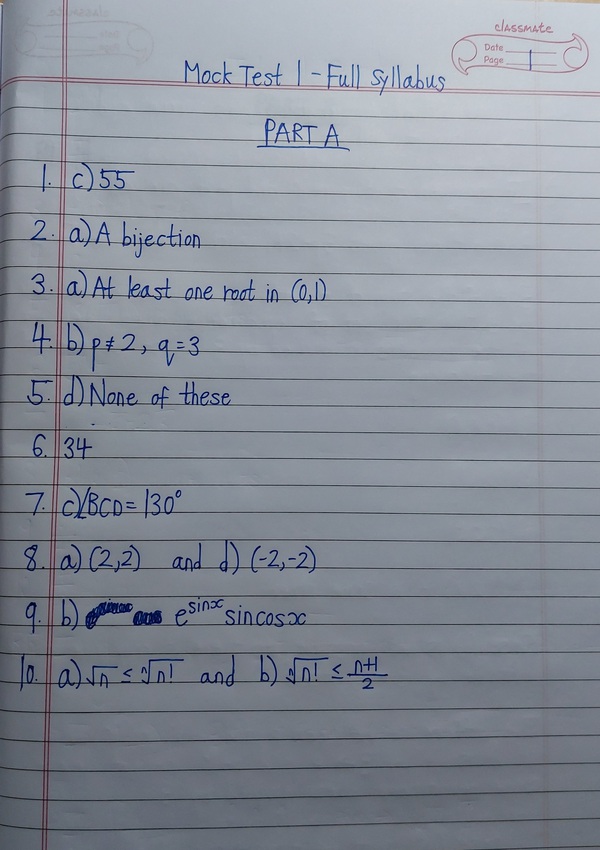 classmate
Date
Page 1
Mock Test 1 - Full Syllabus
PART A
1. c) 55
2. a) A bijection
3. a) At least one root in (0,1)
4. b) p≠2, q=3
5. d) None of these
6. 34
7. c) ∠BCD = 130°
8. a) (2,2) and d) (-2,-2)
9. b) e^sinx sincosx
10. a) √n ≤ ⁿ√n! and b) ⁿ√n! ≤ (n+1)/2